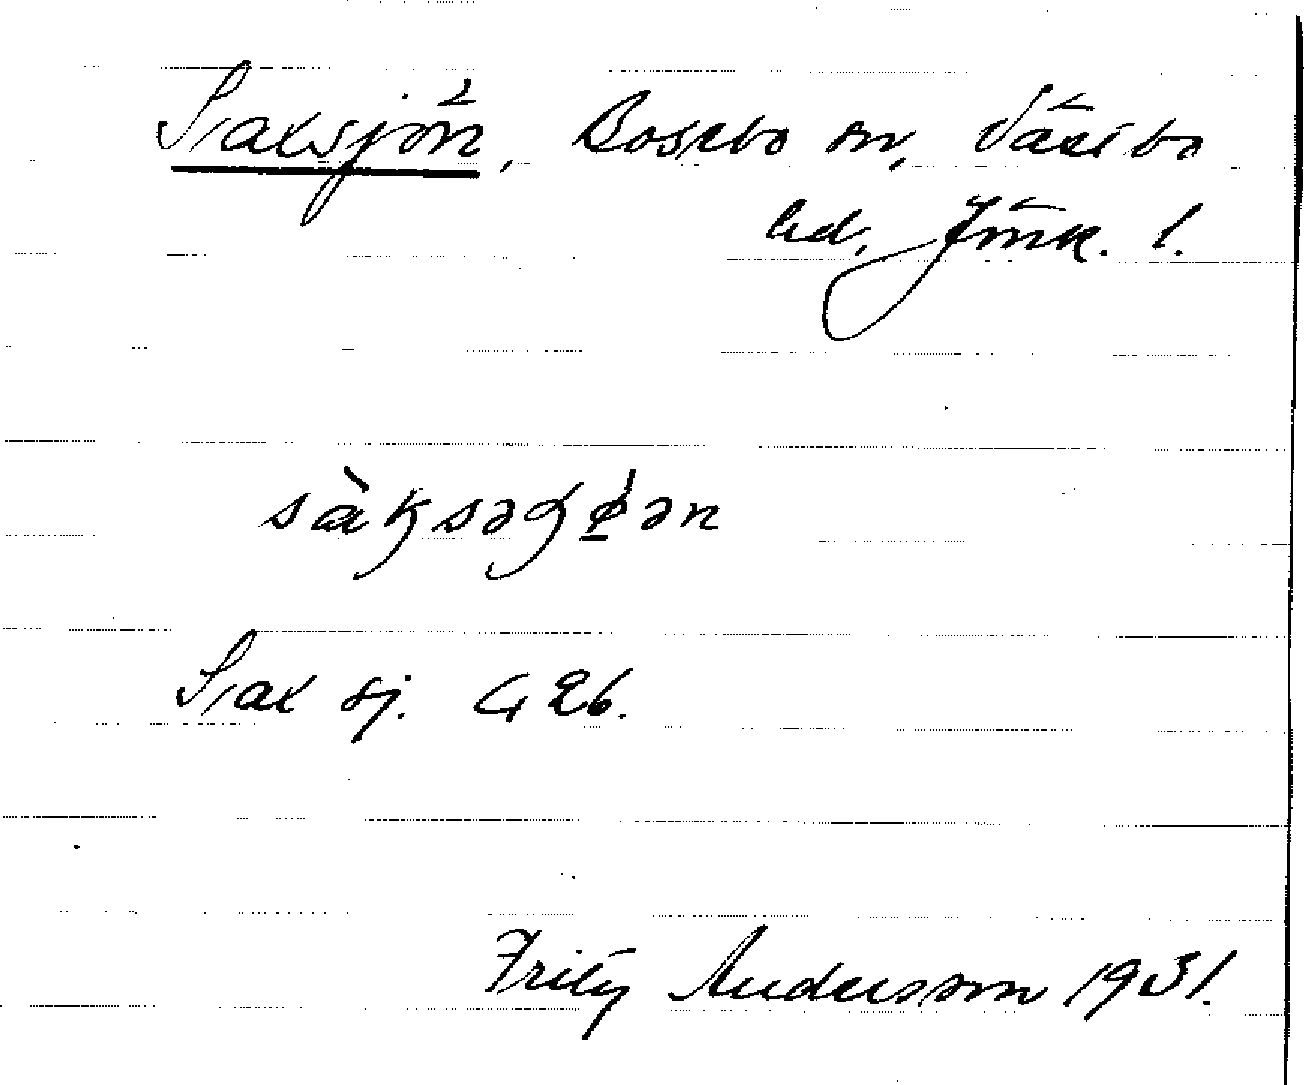 Saksjön, Bosebo sn, Västbo
hd, Jönk. l.
sàksəɣø̱ən
Sak sj. G 26.
Fritz Andersson 1931.